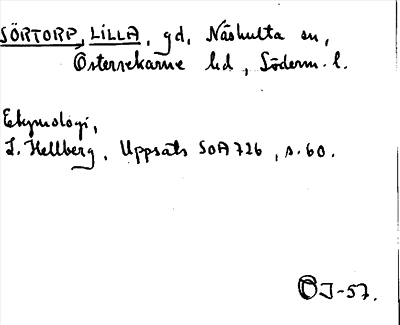 SÖRTORP, LILLA, gd, Näshulta sn,
Österrekarne hd, Söderm. l.
Etymologi,
L. Hellberg, Uppsats SOA 726, s. 60.
ÖJ-57.